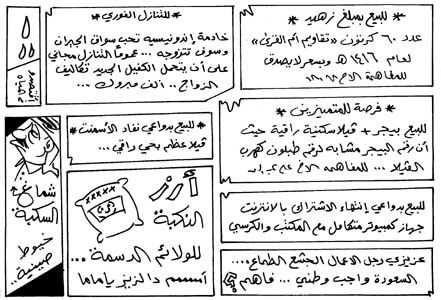 * للبيع بمبلغ زهيد *
عدد ٦٠ كرتون «تقاويم أم القرى»
لعام ١٤١٦ هـ وبسعر لا يصدق
للمفاهمة الاخ
* فرصة للمتميزين *
للبيع بيجر + فيلا سكنية راقية حيث
أن رقم البيجر مشابه لرقم طبلون كهرب
الفيلا ... للمفاهمة الاخ
للبيع بدواعي إنتهاء الاشتراك بالانترنت
جهاز كمبيوتر متكامل مع المكتب والكرسي
عزيزي رجل الاعمال الجشع الطماع...
السعودة واجب وطني ... فاهم
* للتنازل الفوري *
خادمة إندونيسية تحب سواق الجيران
وسوف تتزوجه ... عموماً التنازل مجاني
على أن يتحمل الكفيل الجديد تكاليف
الزواج .. ألف مبروك ...
* للبيع بدواعي نفاد الأسمنت *
فيلا عظم بحي راقي ...
أرز
النكبة
للولائم الدسمة ...
أسسم دا لزيز يا ماما
شماغ
السكبة
خيوط
صينية..